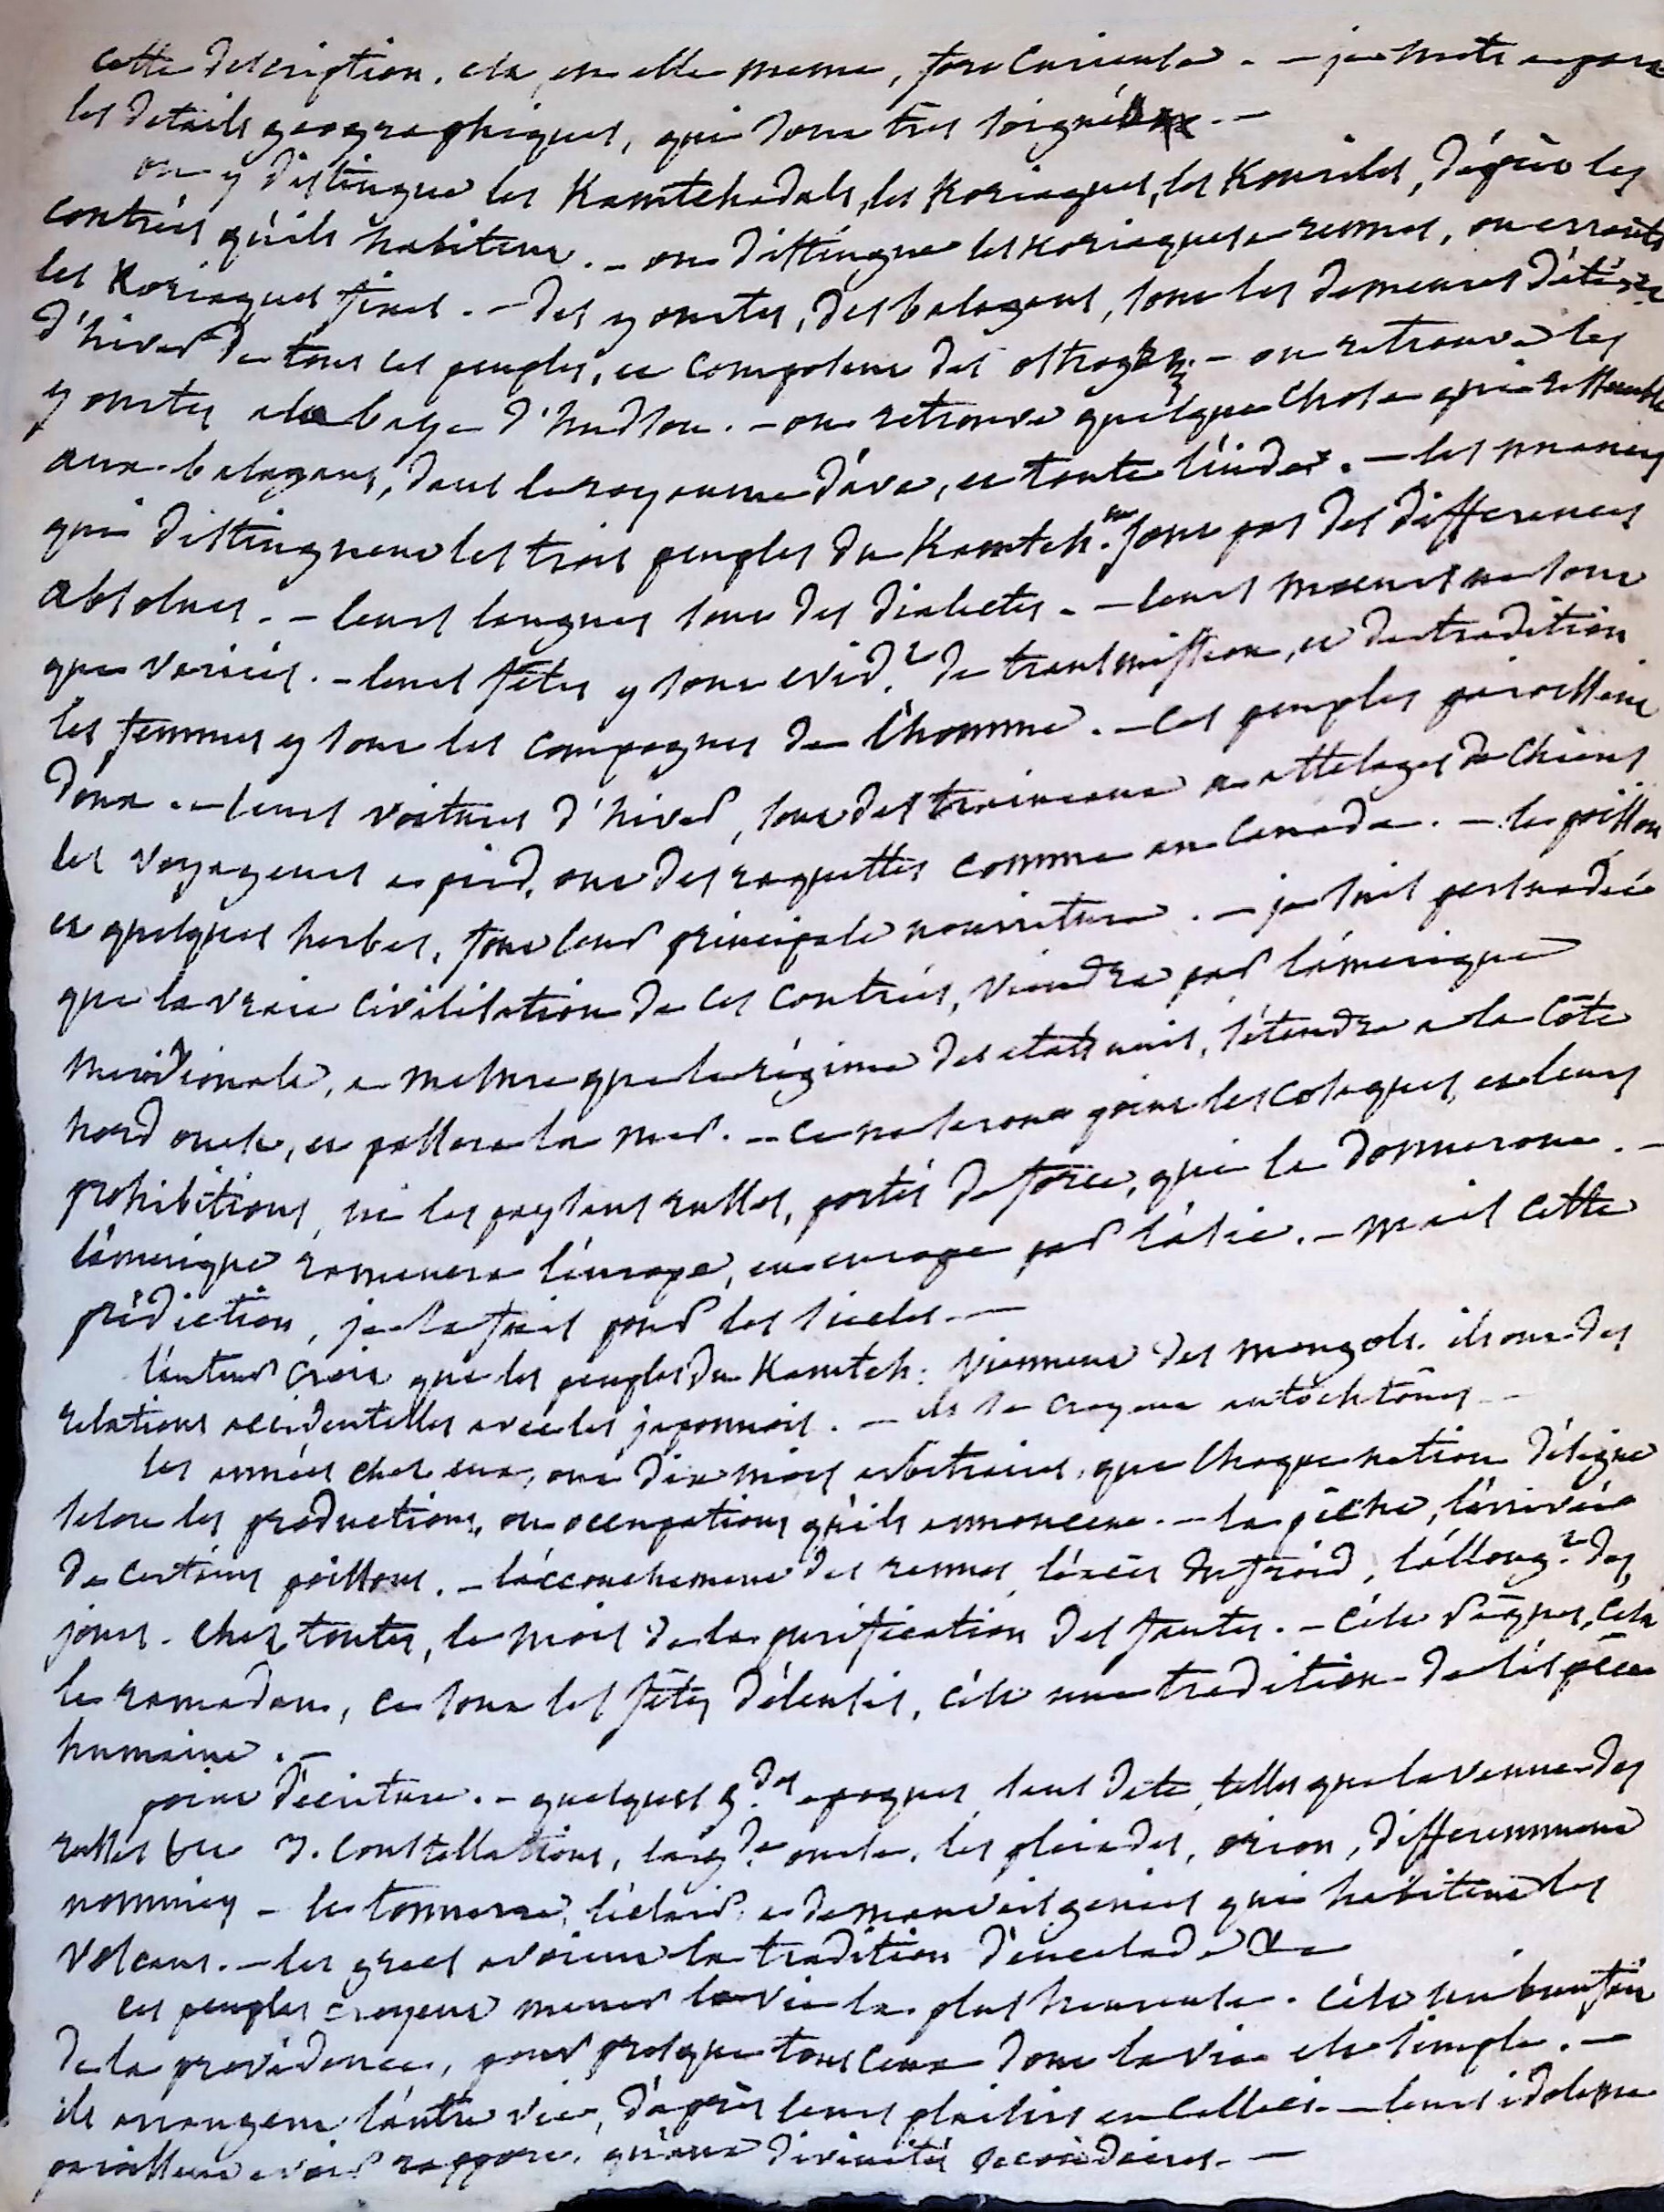 cette description, est, en elle meme, fort curieuse. - je mets a part
les details geographiques, qui sont tres soignés. -
on y distingue les Kamtchadals, les Koriaques, les Kouriles, d'après les
contrées qu'ils habitent. - on distingue les Koriaques a rennes, ou errants
les Koriaques fixes. - des yourtes, des balagans, sont les demeures d'été, et
d'hiver de tous ces peuples, et composent des ostrogs. - on retrouve les
yourtes a la baye d'hudson. - on retrouve quelque chose qui ressemble
aux balagans, dans le royaume d'ava, et toute l'inde. - les nuances
qui distinguent les trois peuples du Kamtch. ne sont pas des differences
absolues. - leurs langues sont des dialectes. - leurs moeurs ne sont
que variées. - leurs fêtes y sont evid.t de transmission, et de tradition
les femmes y sont les compagnes de l'homme. - ces peuples paroissent
doux. - leurs voitures d'hiver, sont des traineaux a attelages de chiens
les voyageurs a pied, ont des raquettes comme en Canada. - le poisson
et quelques herbes, font leur principale nourriture. - je suis persuadée
que la vraie civilisation de ces contrées, viendra par l'amerique
meridionale, a mesure que le régime des etats unis, s'étendra a la côte
nord ouest, et passera la mer. - ce ne seront point les cosaques, et leurs
prohibitions, ni les paysans russes, portés de force, qui la donneront. -
l'amerique ramenera l'europe, en europe par l'asie. - mais cette
prédiction, je la fais pour les siecles. -
l'auteur croit que les peuples du Kamtch: viennent des mongols. ils ont des
relations accidentelles avec les japonnois. - ils se croyent autochtônes -
les années chez eux, ont dix mois arbitraires, que chaque nation désigne
selon les productions, ou occupations qu'ils annoncent. - la pêche, l'arrivée
de certains poissons. - l'accouchement des rennes, l'excès du froid, l'allong.t des
jours. chez toutes, le mois de la purification des fautes. - c'est Pâques, c'est
le ramadan, ce sont les fêtes d'eleusis, c'est une tradition de l'espèce
humaine. -
point d'écriture. - quelques g.des epoques, sans date, telles que la venue des
russes &c 3. constellations, la g.de ourse, les pleiades, orion, differemment
nommées - le tonnerre, l'éclair, a de mauvais genies qui habitent les
volcans. - les grecs avoient la tradition d'encelade &c
ces peuples croyent mener la vie la plus heureuse. c'est un bienfait
de la providence, pour presque tous ceux dont la vie est simple. -
ils arrangent l'autre vie, d'après leurs plaisirs en celle ci. - leurs idoles ne
paroissent avoir rapport, qu'aux divinités secondaires. -